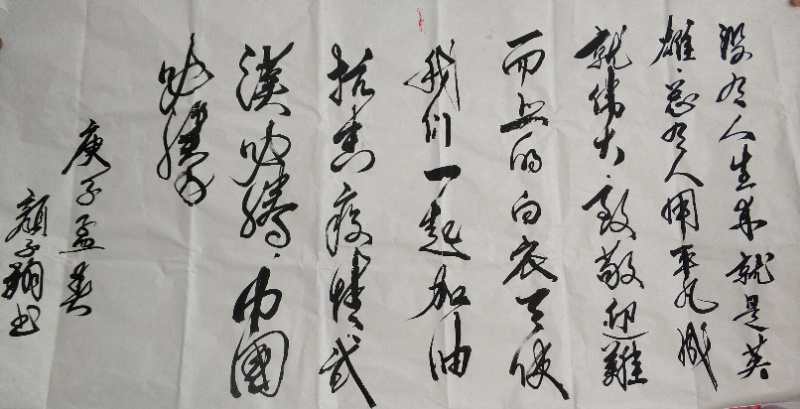 没有人生来就是英
雄总有人用平凡成
就伟大致敬迎难
而上的白衣天使
我们一起加油
抗击疫情武
汉必胜中国
必胜
庚子孟春
颜子翔书